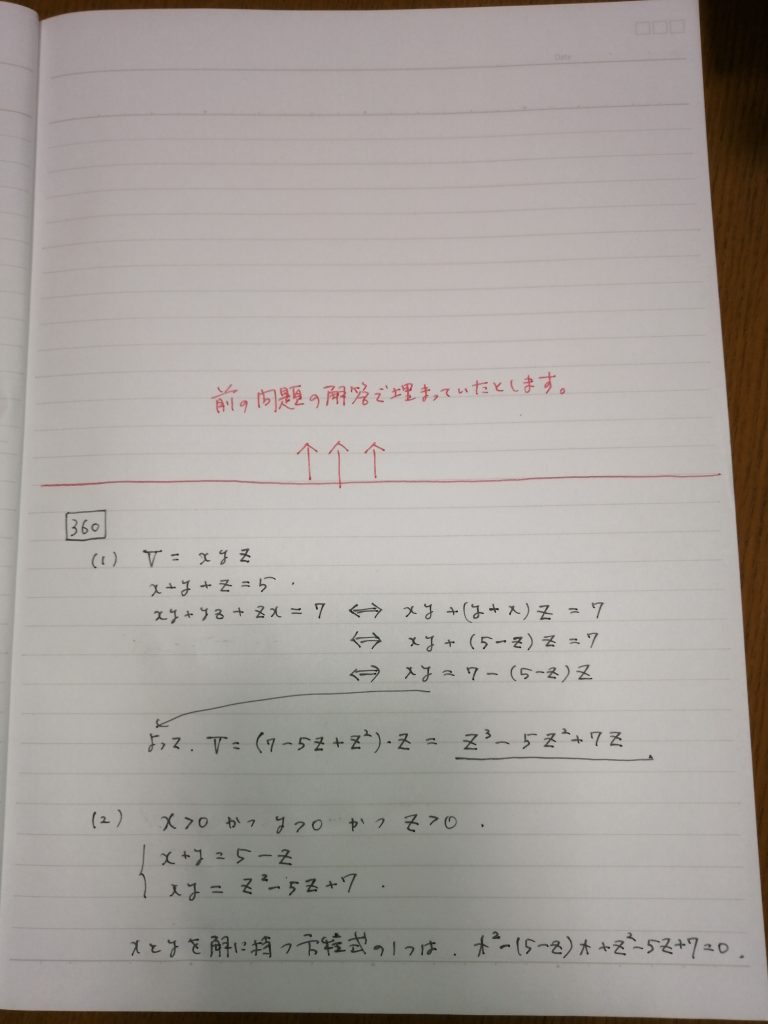 Date
前の問題の解答で埋まっていたとします。
↑ ↑ ↑
360
(1) V = xyz
x+y+z=5.
xy+yz+zx=7 ⟺ xy+(y+x)z=7
⟺ xy+(5-z)z=7
⟺ xy=7-(5-z)z
よって. V=(7-5z+z²)・z = z³-5z²+7z.
(2) x>0 かつ y>0 かつ z>0.
x+y=5-z
xy=z²-5z+7.
xとyを解に持つ方程式の1つは. t²-(5-z)t+z²-5z+7=0.